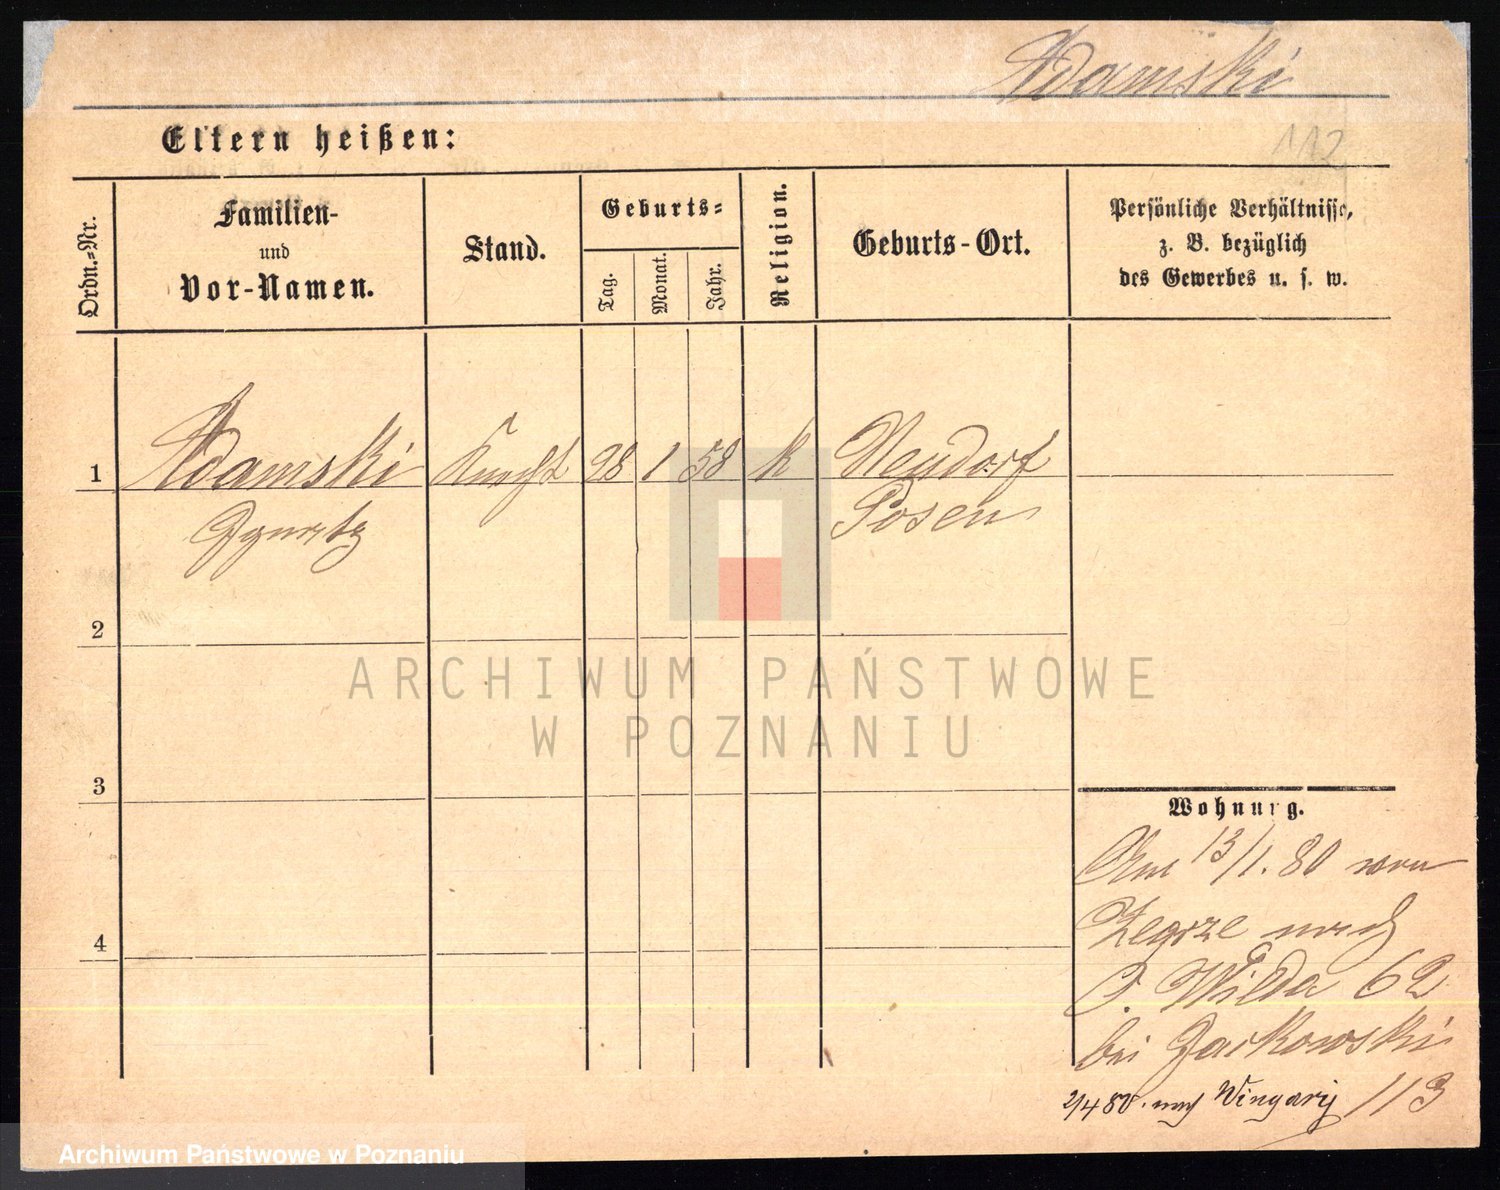 Adamski
112
Eltern heißen:
Ordn.-Nr.
Familien-
und
Vor-Namen.
Stand.
Geburts-
Tag.
Monat.
Jahr.
Religion.
Geburts-Ort.
Persönliche Verhältnisse,
z. B. bezüglich
des Gewerbes u. s. w.
1 Adamski Knecht 28 1 58 k Neudorf
Ignatz Posen
2
3
4
Wohnung.
Am 13/1. 80 von
Zegrze nach
O. Wilda 62
bei Jackowski
2/4 80. nach Wingary 113
ARCHIWUM PAŃSTWOWE
W POZNANIU
Archiwum Państwowe w Poznaniu